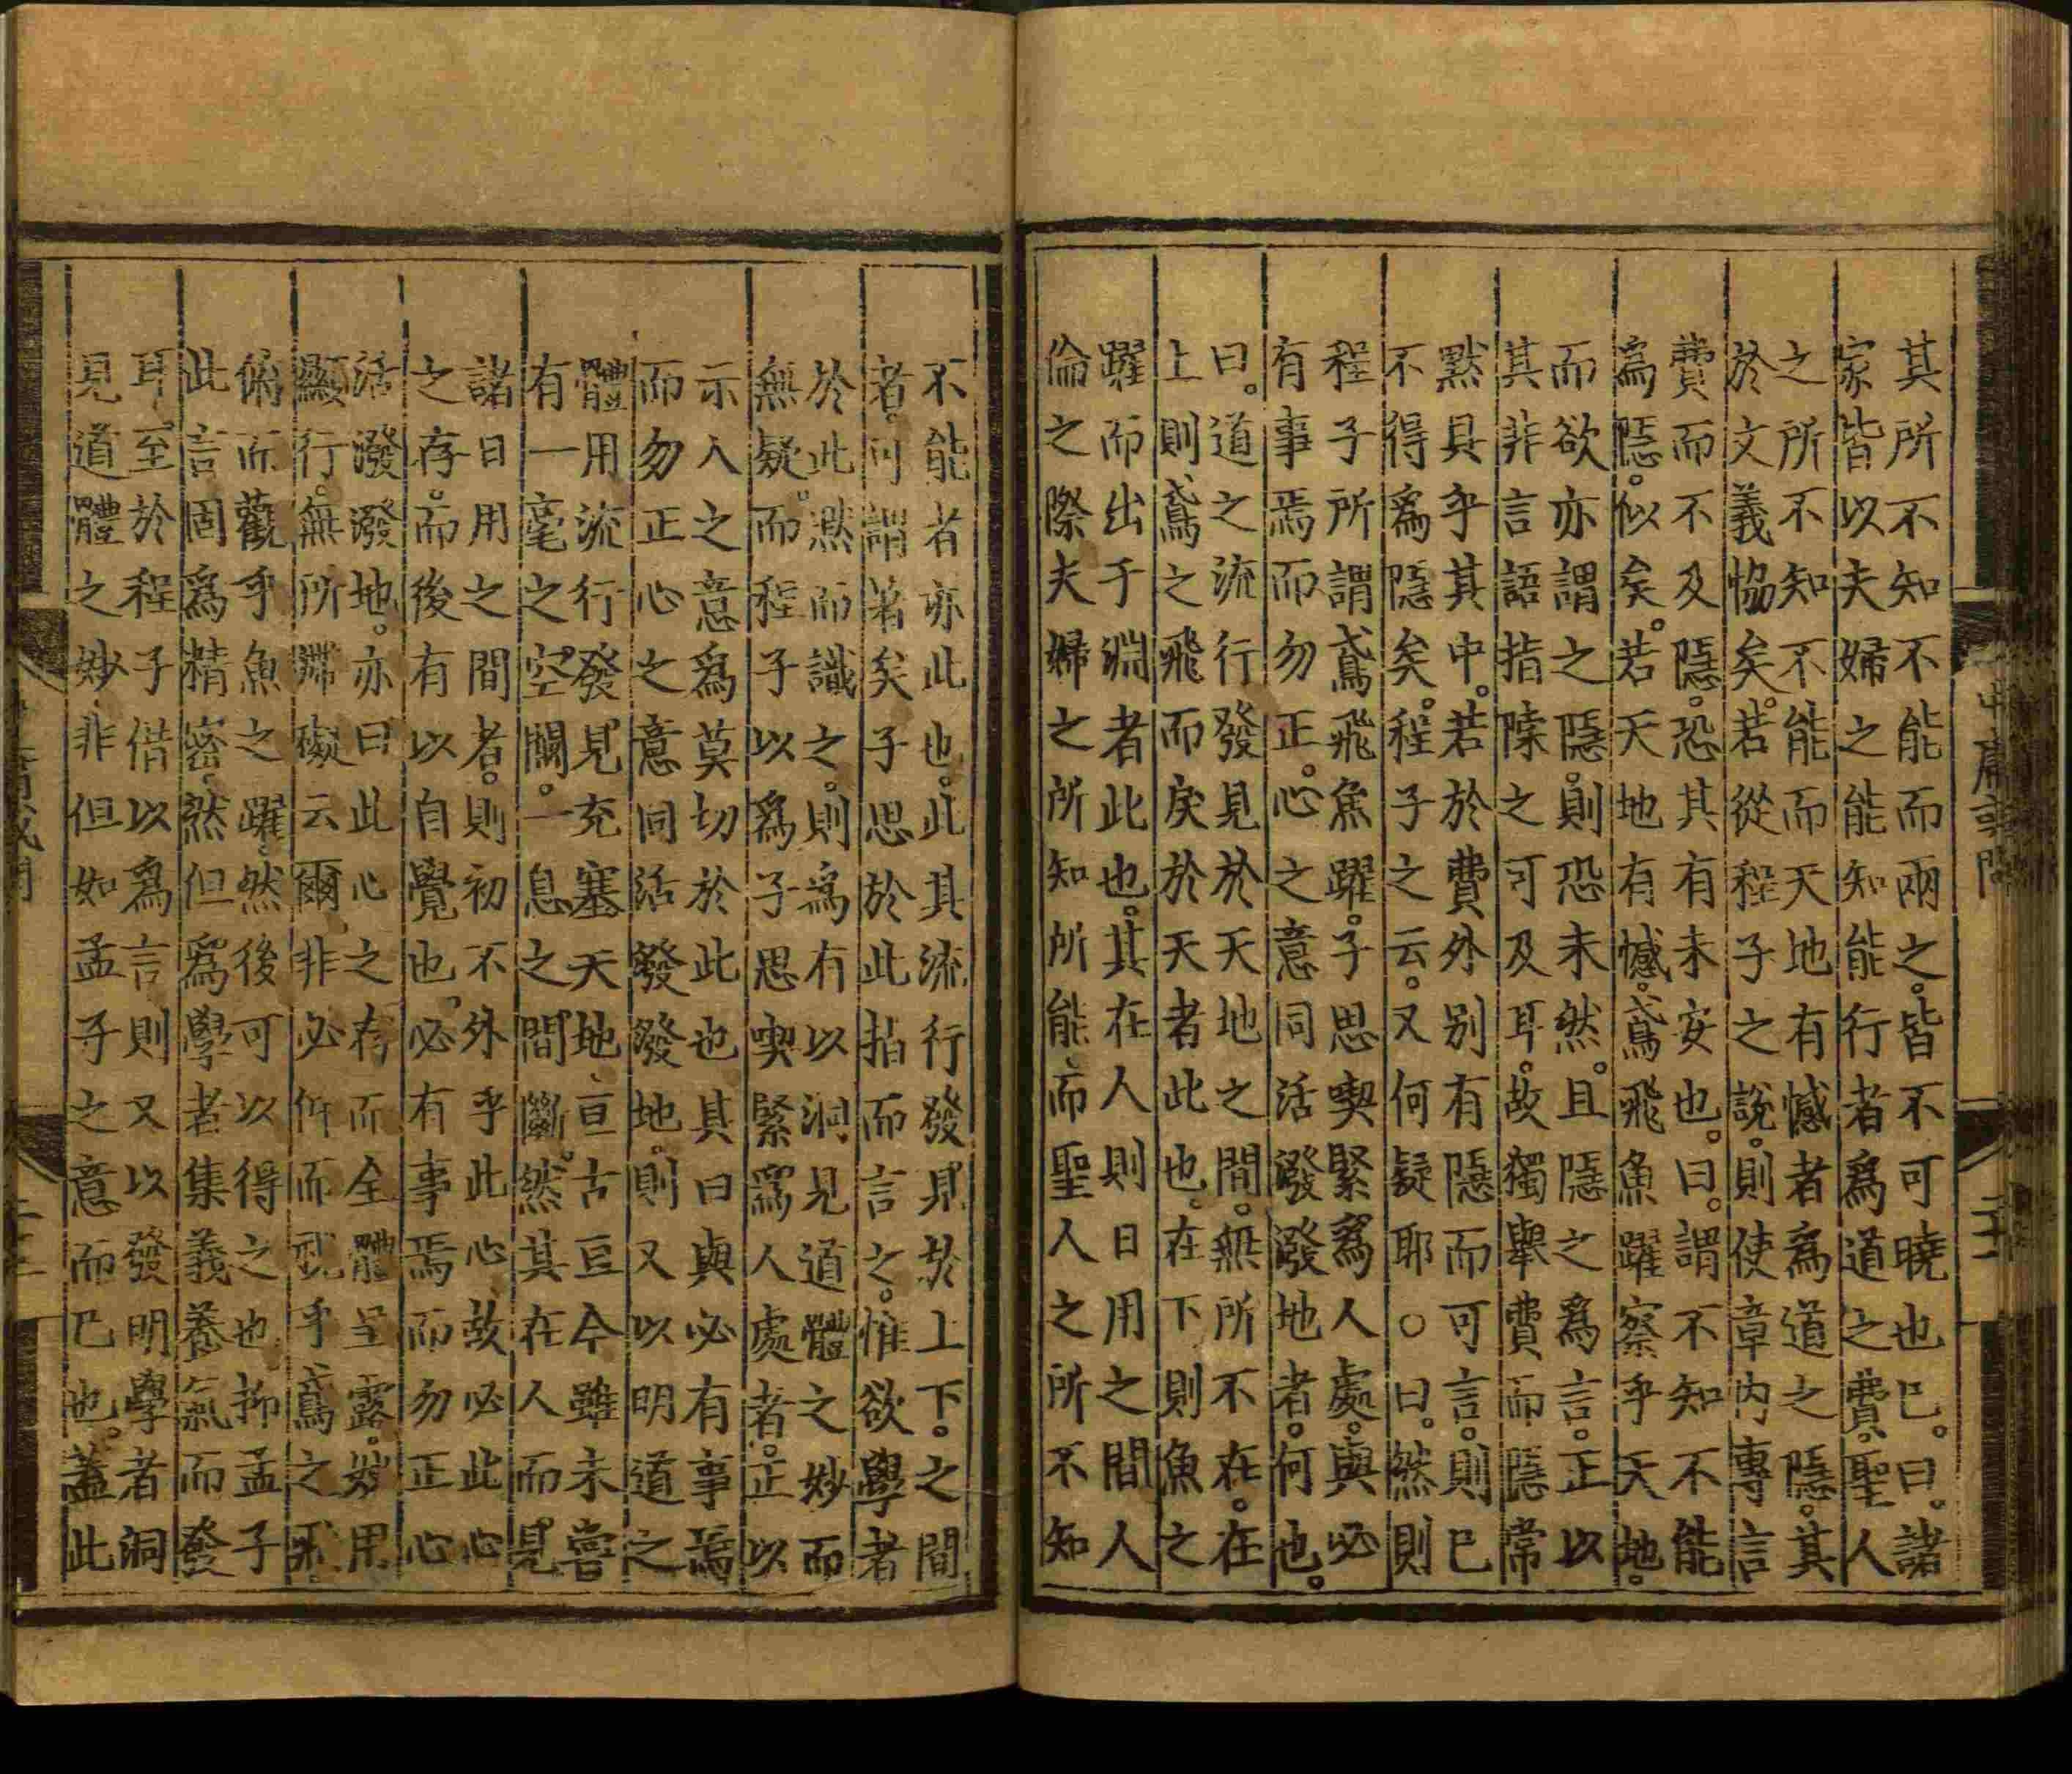 其所不知不能而兩之。皆不可曉也已。曰。諸
家皆以夫婦之能知能行者爲道之費。聖人
之所不知不能而天地有憾者爲道之隱。其
於文義恊矣。若從程子之說。則使章内專言
費而不及隱。恐其有未安也。曰。謂不知不能
爲隱。似矣。若天地有憾。鳶飛魚躍察乎天地。
而欲亦謂之隱。則恐未然。且隱之爲言。正以
其非言語指陳之可及耳。故獨舉費而隱常
默具乎其中。若於費外別有隱而可言。則已
不得爲隱矣。程子之云。又何疑耶○曰。然則
程子所謂鳶飛魚躍。子思喫緊爲人處。與必
有事焉而勿正。心之意同活潑潑地者。何也。
曰。道之流行發見於天地之間。無所不在。在
上則鳶之飛而戾於天者此也。在下則魚之
躍而出于淵者此也。其在人則日用之間人
倫之際夫婦之所知所能、而聖人之所不知
中庸或問
二十一
不能者亦此也。此其流行發見於上下。之間
者。可謂著矣子思於此指而言之。惟欲學者
於此。默而識之。則爲有以洞見道體之妙而
無疑。而程子以爲子思喫緊爲人處者。正以
示人之意爲莫切於此也其曰與必有事焉
而勿正心之意同活潑潑地。則又以明道之
體用流行發見充塞天地、亘古亘今雖未嘗
有一毫之空闕。一息之間斷。然其在人而見
諸日用之間者。則初不外乎此心。故必此心
之存。而後有以自覺也。必有事焉而勿正心
活潑潑地。亦曰此心之存而全體呈露。妙用
顯行。無所滯礙云爾非必仰而視乎鳶之飛
俯而觀乎魚之躍。然後可以得之也。抑孟子
此言固爲精密。然但爲學者集義養氣而發
耳。至於程子借以爲言則又以發明學者洞
見道體之妙非但如孟子之意而已也。蓋此